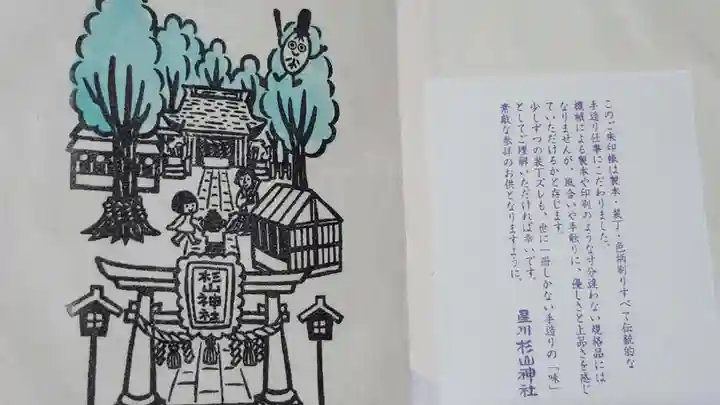 杉山神社
このご朱印帳は製本・装丁・色柄刷りすべて伝統的な
手造り仕事にこだわりました。
機械による製本や印刷のような寸分違わない規格品には
なりませんが、風合いや手触りに、優しさと上品さを感じ
ていただけるかと存じます。
少しずつの装丁ズレも、世に一冊しかない手造りの「味」
としてご理解いただければ幸いです。
素敵な参拝のお供となりますように。
星川杉山神社